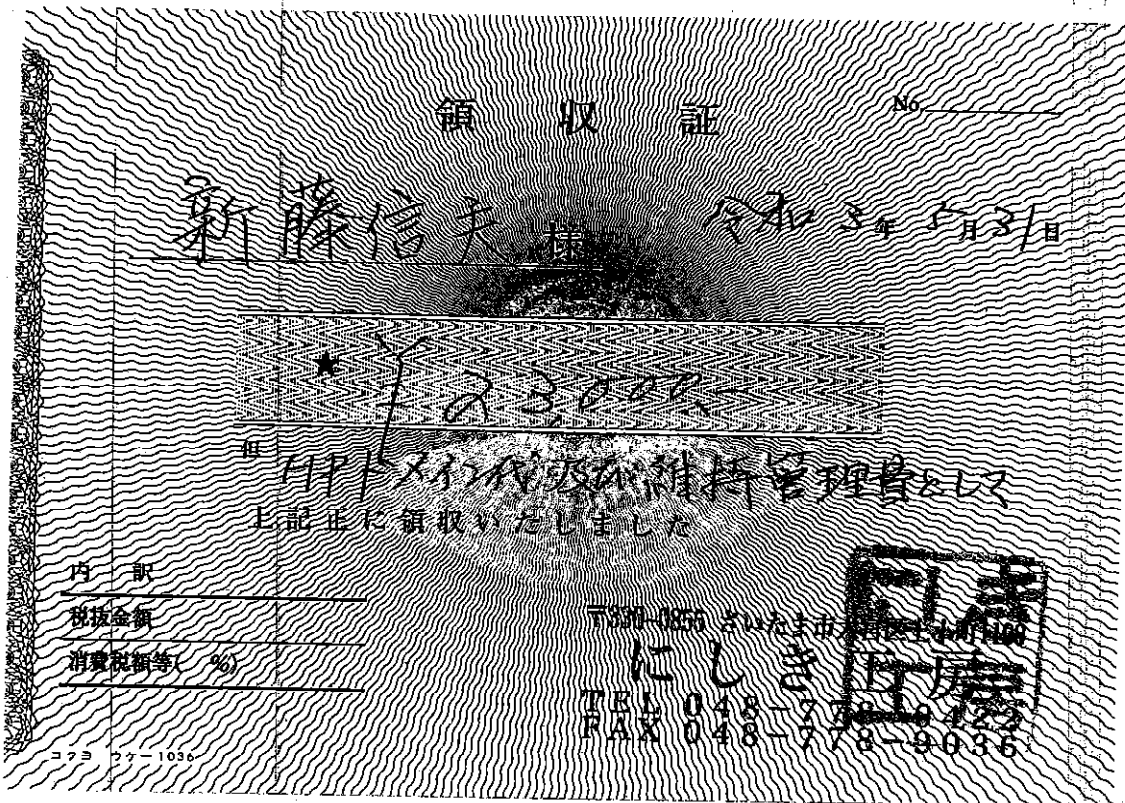 領収証
No.
新藤信夫 様
令和3年5月31日
★ ¥23,000.
但 HPドメイン代及び維持管理費として
上記正に領収いたしました
内訳
税抜金額
消費税額等( %)
〒330-0856 さいたま市
にしき工房
TEL 048-778-
FAX 048-778-9036
コクヨ ウケ-1036